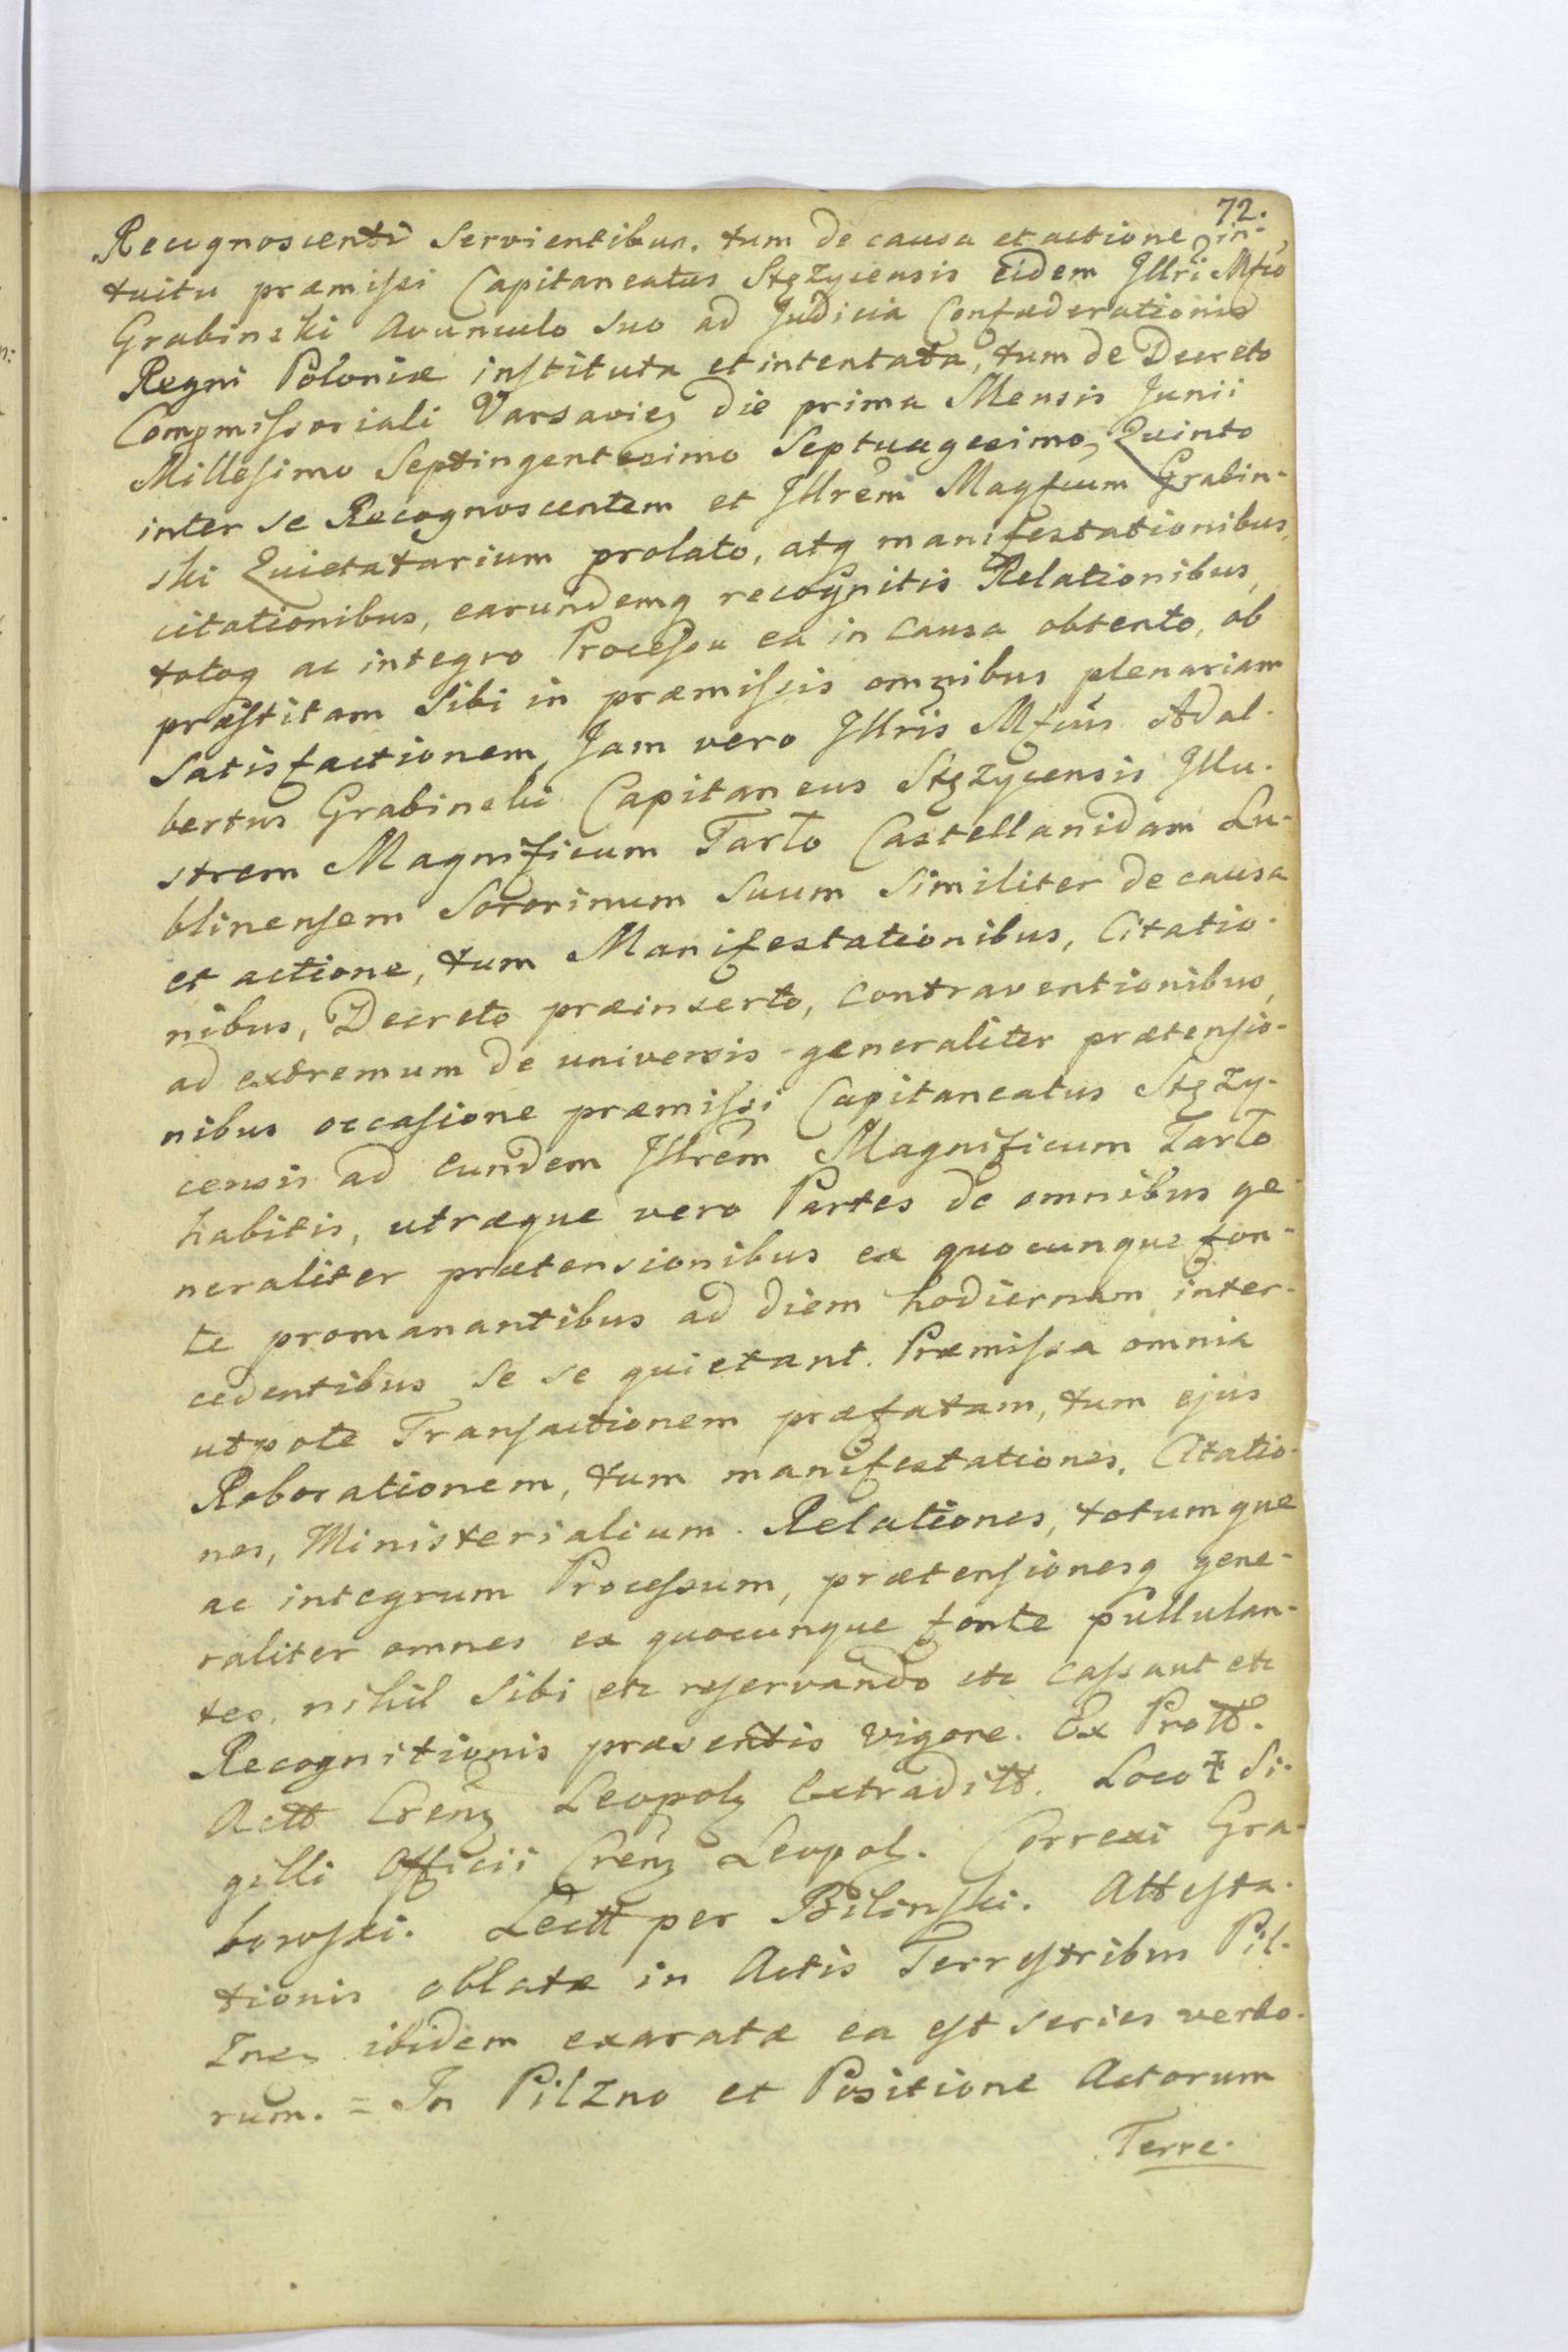 72.
Recognoscenti Servientibus. tum de causa et actione in-
tuitu præmissi Capitaneatus Stęzycensis eidem Jllri Mfco
Grabinski Avunculo suo ad Judicia Confæderationis
Regni Poloniæ instituta et intentata, tum de Decreto
Commissoriali Varsavien die prima Mensis Junii
Millesimo Septingentesimo Septuagesimo, Quinto
inter se Recognoscentem et Jllrem Magfcum Grabin-
ski Quietatarium prolato, atq manifestationibus,
citationibus, earundemq recognitis Relationibus,
totoq ac integro Processu ea in causa obtento, ob
præstitam Sibi in præmissis omnibus plenariam
Satisfactionem, Jam vero Jllris Mfcus Adal-
bertus Grabinski Capitaneus Stęzycensis Jllu-
strem Magnificum Tarło Castellanidam Lu-
blinensem Sororinum Suum Similiter de causa
et actione, tum Manifestationibus, Citatio-
nibus, Decreto præinserto, contraventionibus,
ad extremum de universis generaliter prætensio-
nibus occasione præmissi Capitaneatus Stęzy-
censis ad eundem Jllrem Magnificum Tarło
habitis, utræque vero Partes de omnibus ge-
neraliter prætensionibus ex quocunque fon-
te promanantibus ad diem hodiernam inter-
cedentibus se se quietant. Præmissa omnia
utpote Transactionem præfatam, tum ejus
Roborationem, tum manifestationes, Citatio-
nes, Ministerialium Relationes, totumque
ac integrum Processum, prætensionesq gene-
raliter omnes ex quocunque fonte pullulan-
tes, nihil Sibi etc reservando etc cassant etc
Recognitionis præsentis vigore. Ex Prott.
Actt Crenz Leopolz Extraditt. Loco † Si-
gilli Officii Crenz Leopol. Correxi Gra-
bowski. Lectt per Bilinski. Attesta-
tionis oblatæ in Actis Terrestribus Pil-
znen ibidem exaratæ ea est series verbo-
rum. = In Pilzno et Positione Actorum
Terre-